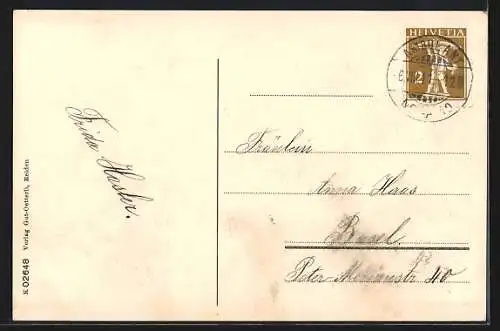 HELVETIA
2
Frida Hasler.
Fräulein
Anna Haas
Basel.
Peter Merianstr 40
K 02648 Verlag Gut-Oetterli, Reiden